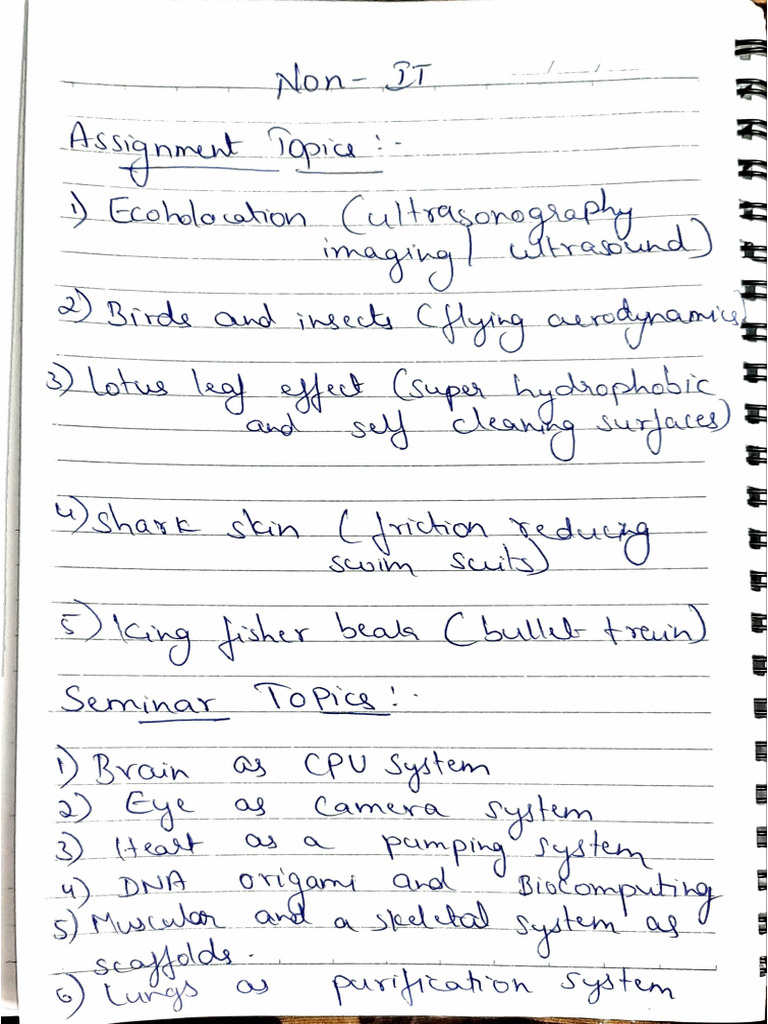 Non-IT
Assignment Topics :-
1) Ecoholocation (ultrasonography
imaging/ ultrasound)
2) Birds and insects (flying aerodynamics)
3) Lotus leaf effect (super hydrophobic
and self cleaning surfaces)
4) Shark skin (friction reducing
swim suits)
5) King fisher beak (bullet train)
Seminar Topics :-
1) Brain as CPU System
2) Eye as camera system
3) Heart as a pumping system
4) DNA origami and Biocomputing
5) Muscular and a skeletal system as
scaffolds.
6) Lungs as purification system